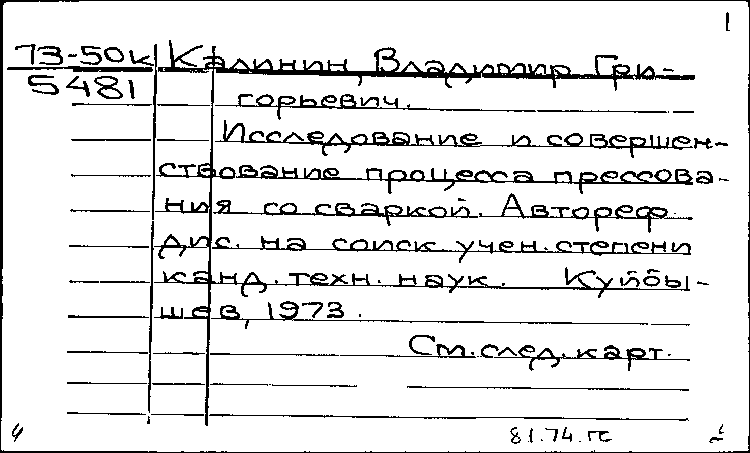 1
73-50к Калинин, Владимир Гри-
5481
горьевич.
Исследование и совершен-
ствование процесса прессова-
ния со сваркой. Автореф.
дис. на соиск. учен. степени
канд. техн. наук. Куйбы-
шев, 1973.
См. след. карт.
81.74.ГС